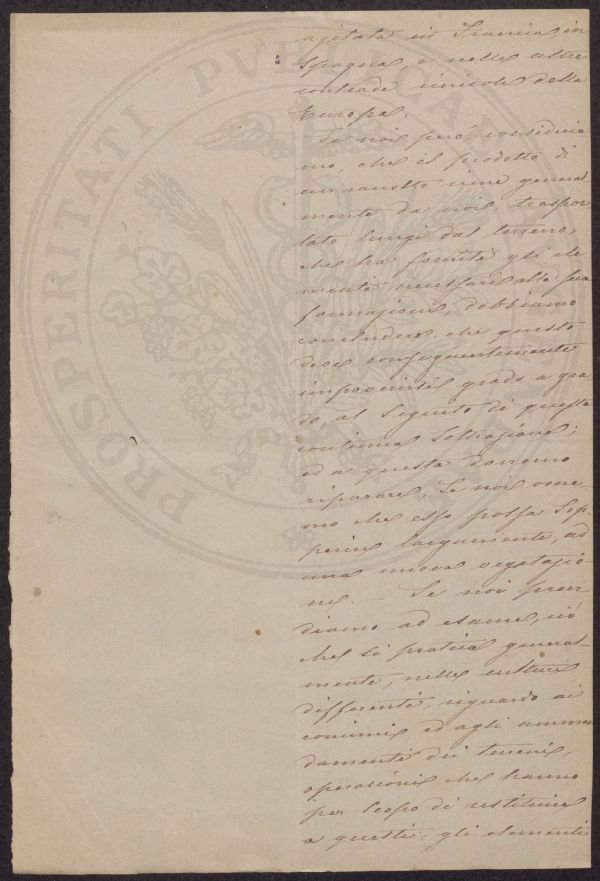 PROSPERITATI PUBLICAE
agitata in Francia, in
Spagna, e nelle altre
contrade vinicole della
Europa.
Se noi però, consideria
mo, che il prodotto di
un raccolto viene general
mente da noi, traspor
tato lungi dal terreno,
che ha fornito gli ele
menti necessarî alla sua
formazione, dobbiamo
concludere che questo
deve conseguentemente
impoverirsi grado a gra
do, al seguito di questa
continua sottrazione;
ed a questa dovremo
riparare, se noi ame-
mo che esso possa sop-
perire largamente, ad
una nuova vegetazio-
ne. — Se noi pren-
diamo ad esame, ciò
che si pratica general-
mente, nelle culture
differenti, riguardo ai
concimi ed agli ammen
damenti dei terreni,
operazioni che hanno
per scopo di restituire
a questi, gli elementi